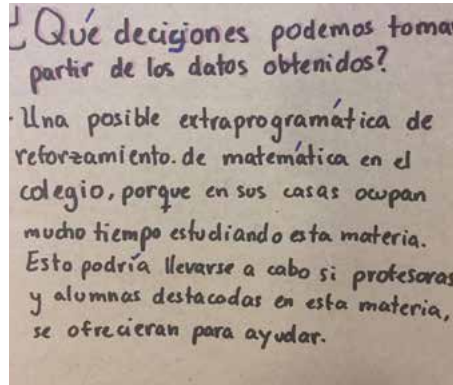 ¿Qué decisiones podemos toma
partir de los datos obtenidos?
- Una posible extraprogramática de
reforzamiento. de matemática en el
colegio, porque en sus casas ocupan
mucho tiempo estudiando esta materia.
Esto podría llevarse a cabo si profesoras
y alumnas destacadas en esta materia,
se ofrecieran para ayudar.